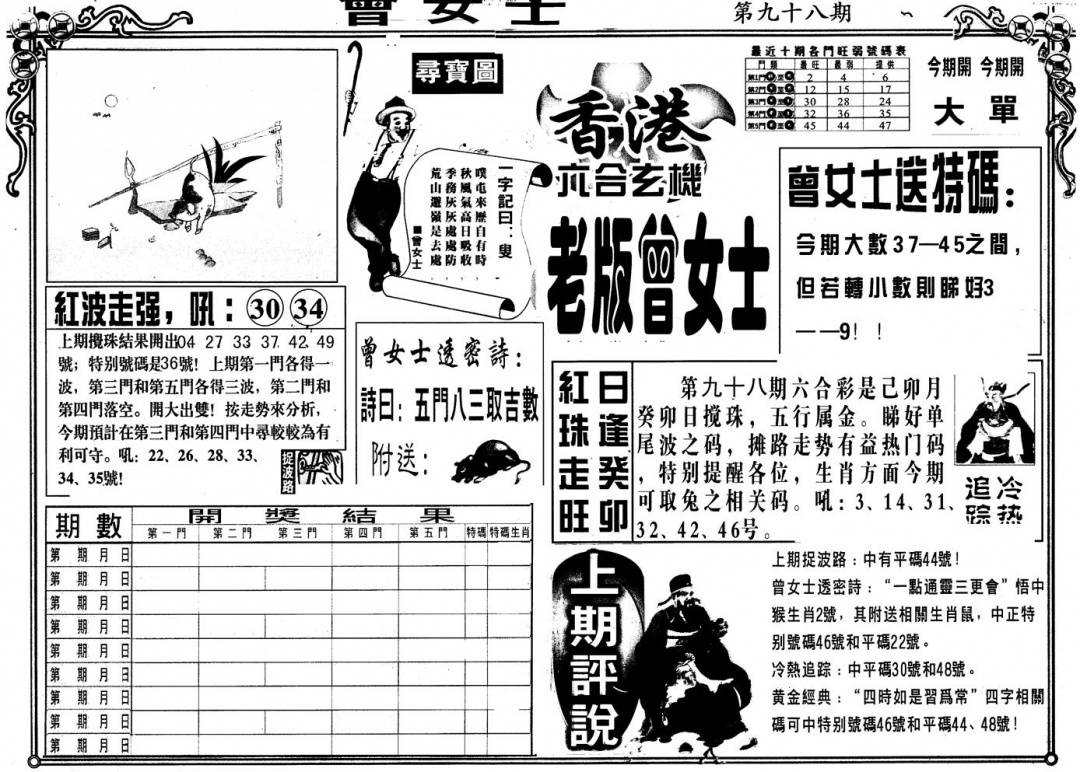 曾女士
第九十八期
尋寶圖
一字記曰：叟
噗屯來歷自有時
秋風氣高日吸收
季務灰灰處處防
荒山遛嶺是去處
■曾女士
香港
六合玄機
老版曾女士
最近十期各門旺弱號碼表
門類 最旺 最弱 提供
第1門 至 2 4 6
第2門 至 12 15 17
第3門 至 30 28 24
第4門 至 32 36 35
第5門 至 45 44 47
今期開 今期開
大 單
曾女士送特碼：
今期大數37—45之間，
但若轉小數則睇好3
——9！！
紅波走强，吼：30 34
上期攪珠結果開出04 27 33 37 42 49
號；特别號碼是36號！上期第一門各得一
波，第三門和第五門各得三波，第二門和
第四門落空。開大出雙！按走勢來分析，
今期預計在第三門和第四門中尋較較為有
利可守。吼：22、26、28、33、
34、35號！
捉波路
曾女士透密詩：
詩曰：五門八三取吉數
附送：
紅珠走旺
日逢癸卯
第九十八期六合彩是己卯月
癸卯日搅珠，五行属金。睇好单
尾波之码，摊路走势有益热门码
，特别提醒各位，生肖方面今期
可取兔之相关码。吼：3、14、31、
32、42、46号。
冷热
追踪
期數 開獎結果
第一門 第二門 第三門 第四門 第五門 特碼 特碼生肖
第 期 月 日
第 期 月 日
第 期 月 日
第 期 月 日
第 期 月 日
第 期 月 日
第 期 月 日
第 期 月 日
第 期 月 日
上期評說
上期捉波路：中有平碼44號！
曾女士透密詩：“一點通靈三更會”悟中
猴生肖2號，其附送相關生肖鼠，中正特
别號碼46號和平碼22號。
冷熱追踪：中平碼30號和48號。
黄金經典：“四時如是習爲常”四字相關
碼可中特别號碼46號和平碼44、48號！